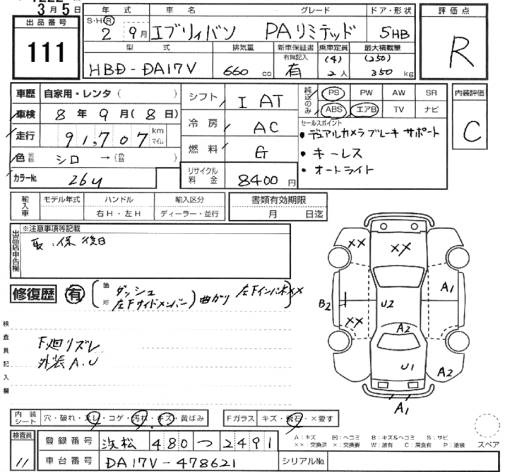 3月5日
出品番号
111
年式 車名 グレード ドア・形状
S・H・R 2 9月 エブリィバン PAリミテッド 5HB
型式 排気量 新車保証書 乗車定員 最大積載量
有無記入 (4) (250)
HBD-DA17V 660 cc 有 2人 350 kg
評価点
R
車歴 自家用・レンタ( )
車検 8年9月(8日)
走行 91,707 km マイル
色 シロ →(色 )
カラーNo. 26U
シフト I AT
冷房 AC
燃料 G
リサイクル料金 8400円
純正のみ PS PW AW SR
ABS エアB TV ナビ
セールスポイント
・デュアルカメラブレーキサポート
・キーレス
・オートライト
内装評価
C
輸入車 モデル年式 ハンドル 輸入区分 書類有効期限
右H・左H ディーラー・並行 月 日迄
出品店申告欄
※注意事項等記載
取、保、後日
修復歴 有
箇所 ダッシュ
左Fサイドメンバー 曲がり 左FインパネXX
検査員記入欄
F廻リズレ
外装A.U
XX XX A1 B2 U2 A2 XX XX A2 U1 A1 A1
内装シート 穴・破れ・スレ・コゲ・汚れ・キズ・黄ばみ Fガラス キズ・飛石・×要す
A:キズ E:エクボ B:キズ&ヘコミ S:サビ
XX:交換済 ×:交換要 W:波有 C:腐食有 P:塗装
スペア
検査員 11
登録番号 浜松 480 つ 2491
車台番号 DA17V-478621 シリアルNo.